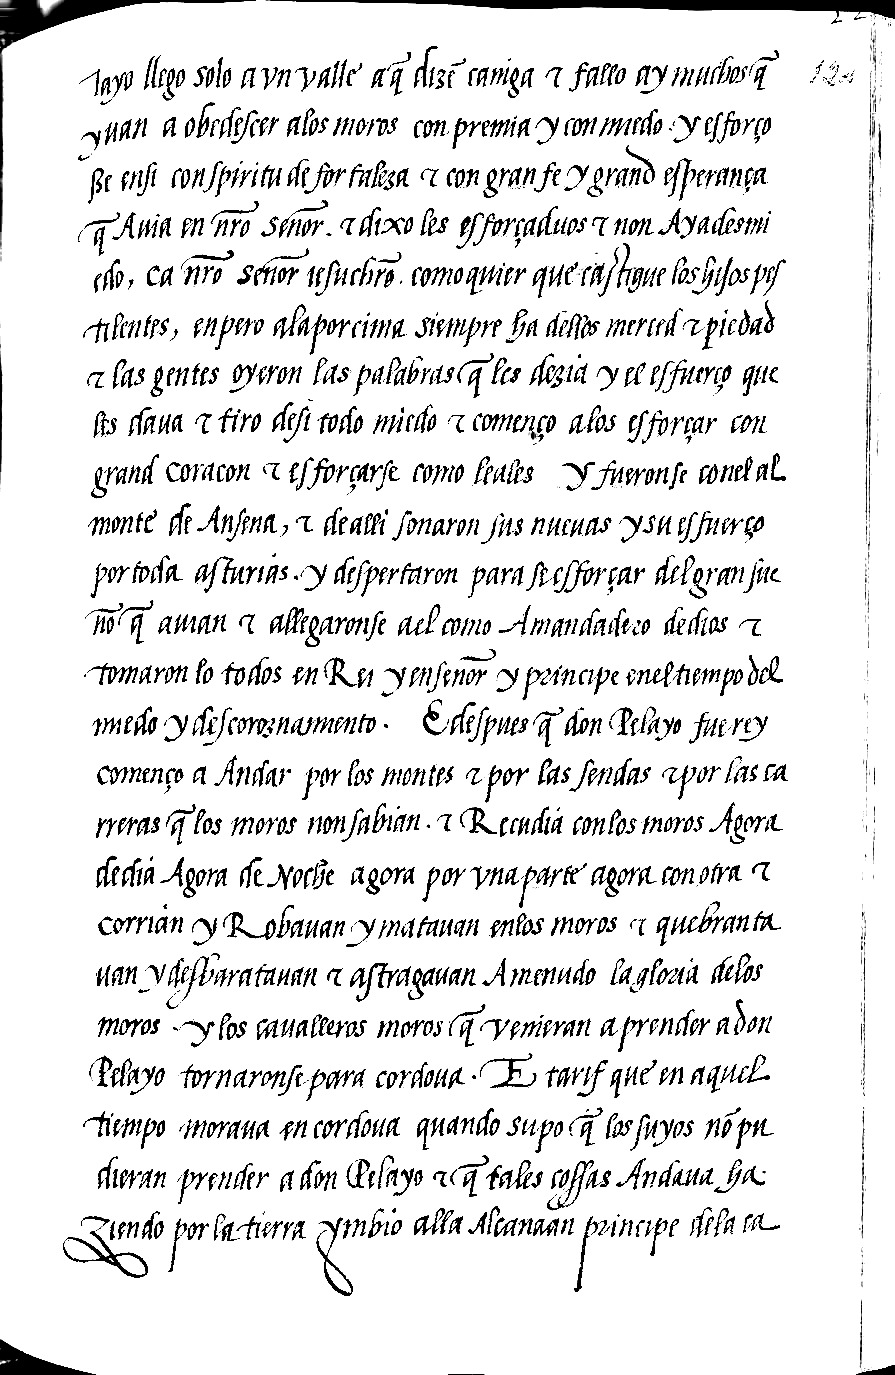 layo llego solo a vn valle a q̃ dizẽ caniga τ fallo ay muchos q̃
yuan a obedescer alos moros con premia y con miedo. y esforço
sse ensi con spiritu de fortaleza τ con gran fe y grand esperança
q̃ Auia en nr̃o señor. τ dixo les esforçaduos τ non Ayades mi
edo, ca nr̃o señor iesuchr̃o. como quier que castigue los hijos pes
tilentes, enpero ala por cima siempre ha dellos merced τ piedad
τ las gentes oyeron las palabras q̃ les dezia y el esfuerço que
les daua τ tiro desi todo miedo τ començo alos esforçar con
grand coracon τ esforçarse como leales y fueronse con el al
monte de Ansena, τ de alli sonaron sus nueuas y su esfuerço
por toda asturias. y despertaron para se esforçar del gran sue
ño q̃ auian τ allegaronse a el como Amandadero de dios τ
tomaron lo todos en Rei y en señor y principe enel tiempo del
miedo y descoroznamiento. E despues q̃ don Pelayo fue rey
començo a Andar por los montes τ por las sendas τ por las ca
rreras q̃ los moros non sabian. τ Recudia con los moros Agora
de dia Agora de Noche agora por vna parte agora con otra τ
corrian y Robauan y matauan enlos moros τ quebranta
uan y desbaratauan τ astragauan Amenudo la gloria delos
moros. y los caualleros moros q̃ venieran a prender a don
Pelayo tornaronse para cordoua. E tarif que en aquel
tiempo moraua en cordoua quando supo q̃ los suyos nõ pu
dieran prender a don Pelayo τ q̃ tales cossas Andaua ha
ziendo por la tierra ymbio alla Alcanaan principe dela ca